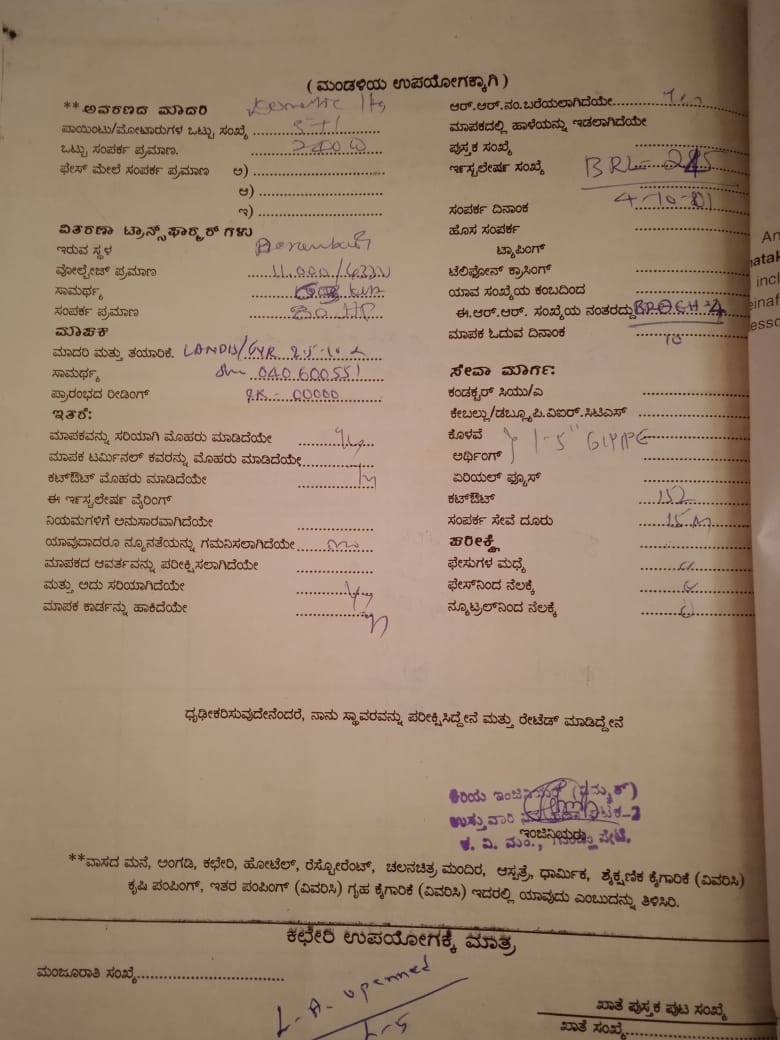 ( ಮಂಡಳಿಯ ಉಪಯೋಗಕ್ಕಾಗಿ )
** ಅವರಣದ ಮಾದರಿ
ಪಾಯಿಂಟು/ಮೋಟಾರುಗಳ ಒಟ್ಟು ಸಂಖ್ಯೆ 5+1
ಒಟ್ಟು ಸಂಪರ್ಕ ಪ್ರಮಾಣ.
ಫೇಸ್ ಮೇಲೆ ಸಂಪರ್ಕ ಪ್ರಮಾಣ ಅ)
ಆ)
ಇ)
ವಿತರಣಾ ಟ್ರಾನ್ಸ್‌ಫಾರ್ಮರ್ ಗಳು
ಇರುವ ಸ್ಥಳ
ವೋಲ್ಟೇಜ್ ಪ್ರಮಾಣ 11.000/433V
ಸಾಮರ್ಥ್ಯ
ಸಂಪರ್ಕ ಪ್ರಮಾಣ 80 HP
ಮಾಪಕ
ಮಾದರಿ ಮತ್ತು ತಯಾರಿಕೆ. LANDIS/GYR 2.5-10 A
ಸಾಮರ್ಥ್ಯ 040600551
ಪ್ರಾರಂಭದ ರೀಡಿಂಗ್ 00000
ಇತರೆ:
ಮಾಪಕವನ್ನು ಸರಿಯಾಗಿ ಮೊಹರು ಮಾಡಿದೆಯೇ
ಮಾಪಕ ಟರ್ಮಿನಲ್ ಕವರನ್ನು ಮೊಹರು ಮಾಡಿದೆಯೇ
ಕಟ್‌ಔಟ್ ಮೊಹರು ಮಾಡಿದೆಯೇ
ಈ ಇನ್‌ಸ್ಟಲೇಷನ್ ವೈರಿಂಗ್
ನಿಯಮಗಳಿಗೆ ಅನುಸಾರವಾಗಿದೆಯೇ
ಯಾವುದಾದರೂ ನ್ಯೂನತೆಯನ್ನು ಗಮನಿಸಲಾಗಿದೆಯೇ
ಮಾಪಕದ ಆವರ್ತವನ್ನು ಪರೀಕ್ಷಿಸಲಾಗಿದೆಯೇ
ಮತ್ತು ಅದು ಸರಿಯಾಗಿದೆಯೇ
ಮಾಪಕ ಕಾರ್ಡನ್ನು ಹಾಕಿದೆಯೇ
ಆರ್.ಆರ್.ನಂ.ಬರೆಯಲಾಗಿದೆಯೇ
ಮಾಪಕದಲ್ಲಿ ಹಾಳೆಯನ್ನು ಇಡಲಾಗಿದೆಯೇ
ಪುಸ್ತಕ ಸಂಖ್ಯೆ
ಇನ್‌ಸ್ಟಲೇಷನ್ ಸಂಖ್ಯೆ BRL
ಸಂಪರ್ಕ ದಿನಾಂಕ 4-10-01
ಹೊಸ ಸಂಪರ್ಕ
ಟ್ಯಾಪಿಂಗ್
ಟೆಲಿಫೋನ್ ಕ್ರಾಸಿಂಗ್
ಯಾವ ಸಂಖ್ಯೆಯ ಕಂಬದಿಂದ
ಈ.ಆರ್.ಆರ್. ಸಂಖ್ಯೆಯ ನಂತರದ್ದು
ಮಾಪಕ ಓದುವ ದಿನಾಂಕ 10
ಸೇವಾ ಮಾರ್ಗ:
ಕಂಡಕ್ಟರ್ ಸಿಯು/ಎ
ಕೇಬಲ್ಲು/ಡಬ್ಲ್ಯೂ.ಪಿ.ವಿಐಆರ್.ಸಿಟಿಎಸ್
ಕೊಳವೆ
ಅರ್ಥಿಂಗ್ 1-5" GI PIPE
ಏರಿಯಲ್ ಫ್ಯೂಸ್
ಕಟ್‌ಔಟ್
ಸಂಪರ್ಕ ಸೇವೆ ದೂರು 15 m
ಪರೀಕ್ಷೆ
ಫೇಸುಗಳ ಮಧ್ಯೆ
ಫೇಸ್‌ನಿಂದ ನೆಲಕ್ಕೆ
ನ್ಯೂಟ್ರಲ್‌ನಿಂದ ನೆಲಕ್ಕೆ
ಧೃಢೀಕರಿಸುವುದೇನೆಂದರೆ, ನಾನು ಸ್ಥಾವರವನ್ನು ಪರೀಕ್ಷಿಸಿದ್ದೇನೆ ಮತ್ತು ರೇಟೆಡ್ ಮಾಡಿದ್ದೇನೆ
ಕಿರಿಯ ಇಂಜಿನಿಯರ್
ಉಸ್ತುವಾರಿ
ಇಂಜಿನಿಯರು
ಕ. ವಿ. ಮಂ.,
**ವಾಸದ ಮನೆ, ಅಂಗಡಿ, ಕಛೇರಿ, ಹೋಟೆಲ್, ರೆಸ್ಟೋರೆಂಟ್, ಚಲನಚಿತ್ರ ಮಂದಿರ, ಆಸ್ಪತ್ರೆ, ಧಾರ್ಮಿಕ, ಶೈಕ್ಷಣಿಕ ಕೈಗಾರಿಕೆ (ವಿವರಿಸಿ)
ಕೃಷಿ ಪಂಪಿಂಗ್, ಇತರ ಪಂಪಿಂಗ್ (ವಿವರಿಸಿ) ಗೃಹ ಕೈಗಾರಿಕೆ (ವಿವರಿಸಿ) ಇದರಲ್ಲಿ ಯಾವುದು ಎಂಬುದನ್ನು ತಿಳಿಸಿರಿ.
ಕಛೇರಿ ಉಪಯೋಗಕ್ಕೆ ಮಾತ್ರ
ಮಂಜೂರಾತಿ ಸಂಖ್ಯೆ
L-A-openned
L-5
ಖಾತೆ ಪುಸ್ತಕ ಪುಟ ಸಂಖ್ಯೆ
ಖಾತೆ ಸಂಖ್ಯೆ